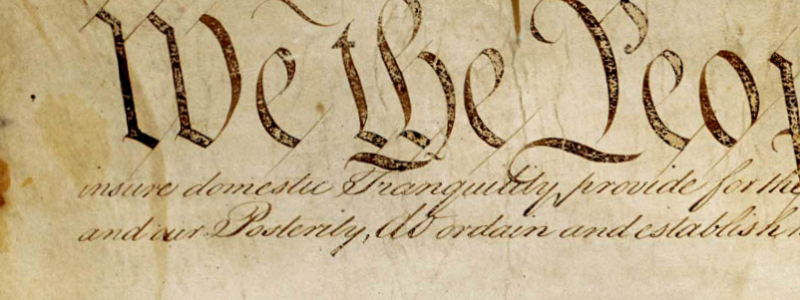 We the Peop
insure domestic Tranquility, provide for the
and our Posterity, do ordain and establish